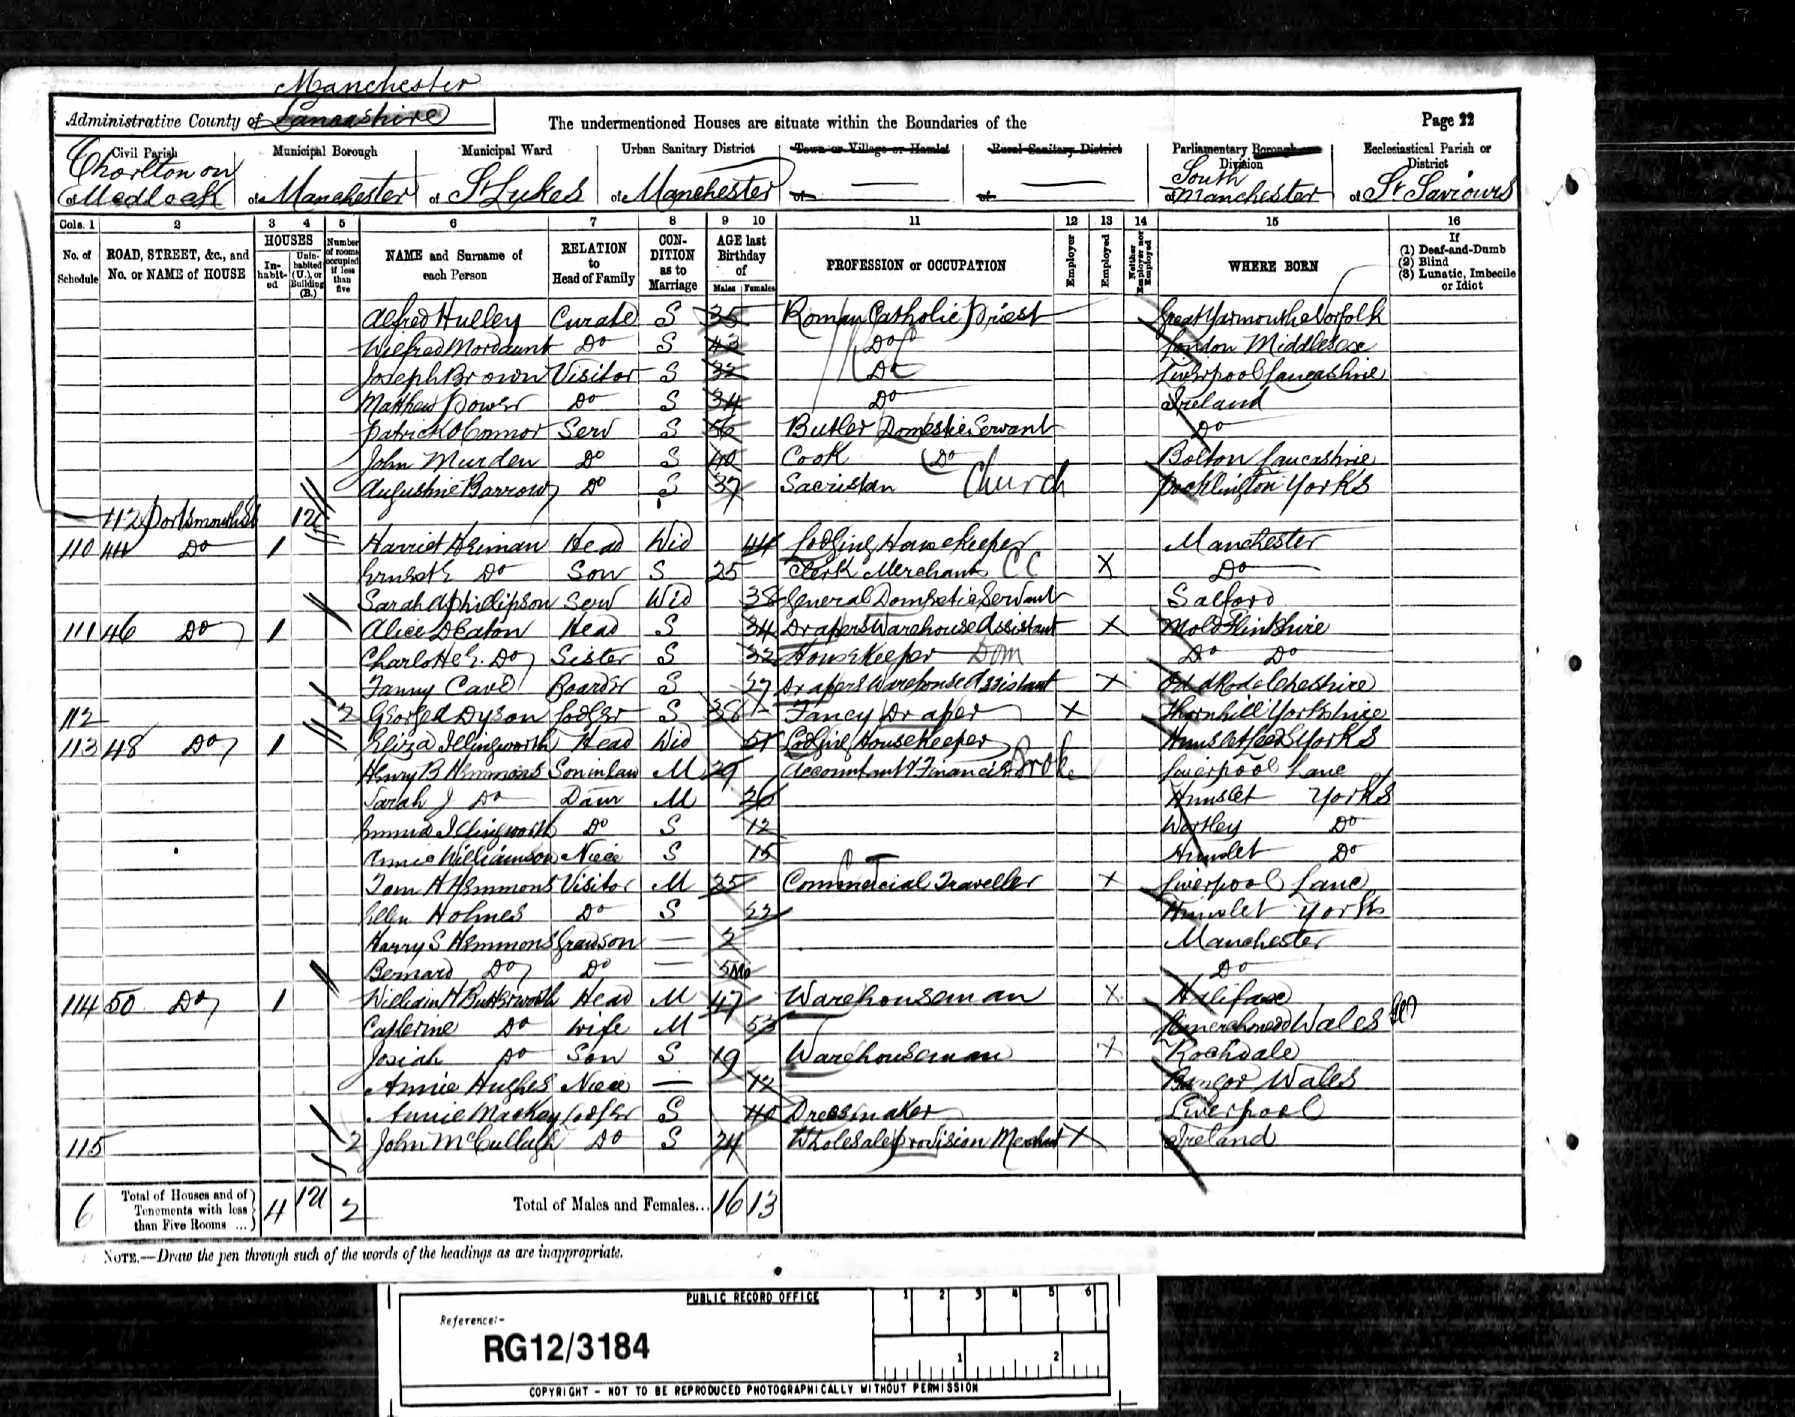 Manchester
Administrative County of Lancashire The undermentioned Houses are situate within the Boundaries of the Page 22
Civil Parish Municipal Borough Municipal Ward Urban Sanitary District Town or Village or Hamlet Rural Sanitary District Parliamentary Borough or Division Ecclesiastical Parish or District
Chorlton on Medlock of Manchester of St Lukes of Manchester of of South Manchester of St Saviours
Cols. 1 2 3 4 5 6 7 8 9 10 11 12 13 14 15 16
No. of Schedule ROAD, STREET, &c., and No. or NAME of HOUSE HOUSES Inhabited Uninhabited (U.), or Building (B.) Number of rooms occupied if less than five NAME and Surname of each Person RELATION to Head of Family CONDITION as to Marriage AGE last Birthday of Males Females PROFESSION or OCCUPATION Employer Employed Neither Employer nor Employed WHERE BORN If (1) Deaf-and-Dumb (2) Blind (3) Lunatic, Imbecile or Idiot
Alfred Hulley Curate S 35 Roman Catholic Priest Great Yarmouth Norfolk
Wilfred Mordaunt Do S 43 Do London Middlesex
Joseph Brown Visitor S 32 Do Liverpool Lancashire
Matthew Power Do S 34 Do Ireland
Patrick O'Connor Serv S 56 Butler Domestic Servant Do
John Murden Do S 40 Cook Do Bolton Lancashire
Augustine Barrow Do S 37 Sacristan Church Pocklington Yorks
42 Portsmouth St 1 U
110 44 Do 1 Harriet Heiman Head Wid 44 Lodging Housekeeper Manchester
Ernest E Do Son S 25 Clerk Merchants CC X Do
Sarah A Phillipson Serv Wid 38 General Domestic Servant Salford
111 46 Do 1 Alice Deaton Head S 34 Drapers Warehouse Assistant X Mold Flintshire
Charlotte E. Do Sister S 32 Housekeeper Dom Do Do
Fanny Cave Boarder S 27 Drapers Warehouse Assistant X Odd Rode Cheshire
112 2 George A Dyson Lodger S 36 Fancy Draper X Thornhill Yorkshire
113 48 Do 1 Eliza Illingworth Head Wid 51 Lodging Housekeeper Yorks
Henry B Hemmons Son in law M 29 Accountant & Financial Broke Liverpool Lanc
Sarah J Do Daur M 26 Hunslet Yorks
Illingworth Do S 12 Wortley Do
Annie Williamson Niece S 15 Hunslet Do
Tom H Hemmons Visitor M 25 Commercial Traveller X Liverpool Lanc
Ellen Holmes Do S 22 Hunslet Yorks
Harry S Hemmons Grandson — 2 Manchester
Bernard Do Do — 5 Mo Do
114 50 Do 1 William H Butterworth Head M 47 Warehouseman X Halifax
Catherine Do Wife M 53 Wales
Josiah Do Son S 19 Warehouseman X Rochdale
Annie Hughes Niece — 12 Bangor Wales
Annie Mackay Lodger S 40 Dressmaker Liverpool
115 2 John McCullagh Do S 24 Wholesale Provision Merchant X Ireland
6 Total of Houses and of Tenements with less than Five Rooms ... 4 1U 2 Total of Males and Females... 16 13
NOTE.—Draw the pen through such of the words of the headings as are inappropriate.
PUBLIC RECORD OFFICE
Reference:-
RG12/3184
1 2 3 4 5 6
1 2
COPYRIGHT - NOT TO BE REPRODUCED PHOTOGRAPHICALLY WITHOUT PERMISSION